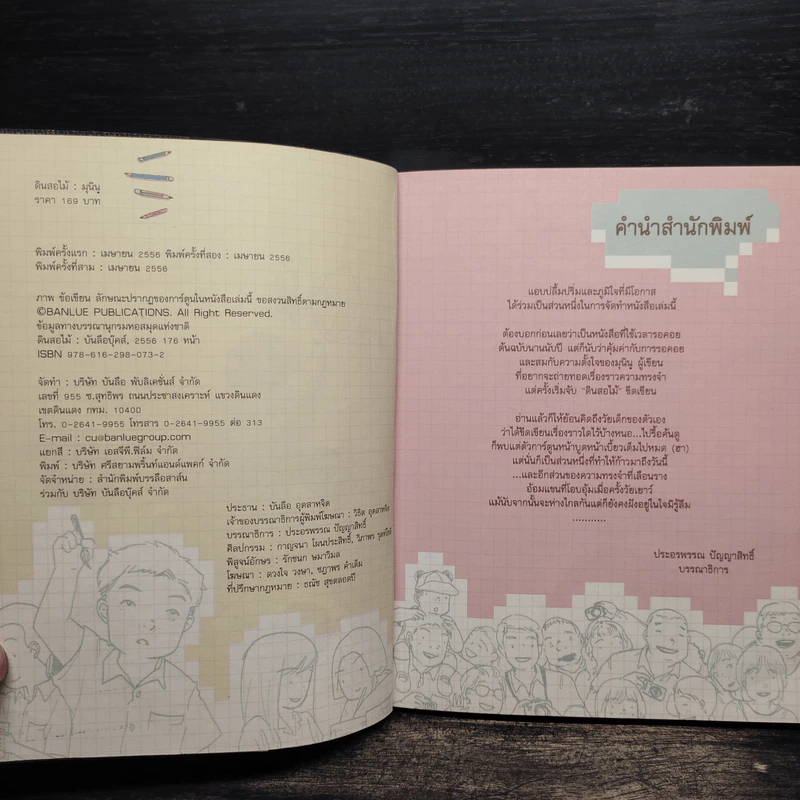 ดินสอไม้ : มุนินฺ
ราคา 169 บาท
พิมพ์ครั้งแรก : เมษายน 2556 พิมพ์ครั้งที่สอง : เมษายน 2556
พิมพ์ครั้งที่สาม : เมษายน 2556
ภาพ ข้อเขียน ลักษณะปรากฏของการ์ตูนในหนังสือเล่มนี้ ขอสงวนสิทธิ์ตามกฎหมาย
©BANLUE PUBLICATIONS. All Right Reserved.
ข้อมูลทางบรรณานุกรมหอสมุดแห่งชาติ
ดินสอไม้ : บันลือบุ๊คส์, 2556 176 หน้า
ISBN 978-616-298-073-2
จัดทำ : บริษัท บันลือ พับลิเคชั่นส์ จำกัด
เลขที่ 955 ซ.สุทธิพร ถนนประชาสงเคราะห์ แขวงดินแดง
เขตดินแดง กทม. 10400
โทร. 0-2641-9955 โทรสาร 0-2641-9955 ต่อ 313
E-mail : cu@banluegroup.com
แยกสี : บริษัท เอสจีพี.ฟิล์ม จำกัด
พิมพ์ : บริษัท ศรีสยามพริ้นท์แอนด์แพคก์ จำกัด
จัดจำหน่าย : สำนักพิมพ์บรรลือสาส์น
ร่วมกับ บริษัท บันลือบุ๊คส์ จำกัด
ประธาน : บันลือ อุตสาหจิต
เจ้าของบรรณาธิการผู้พิมพ์โฆษณา : วิธิต อุตสาหจิต
บรรณาธิการ : ประอรพรรณ ปัญญาสิทธิ์
ศิลปกรรม : กาญจนา โผนประสิทธิ์, วิภาพร
พิสูจน์อักษร : รักชนก ษมาวิมล
โฆษณา : ดวงใจ วงษา, ชฎาพร คำเต็ม
ที่ปรึกษากฎหมาย : ธณัช สุขตลอดปี
คำนำสำนักพิมพ์
แอบปลื้มปริ่มและภูมิใจที่มีโอกาส
ได้ร่วมเป็นส่วนหนึ่งในการจัดทำหนังสือเล่มนี้
ต้องบอกก่อนเลยว่าเป็นหนังสือที่ใช้เวลารอคอย
ต้นฉบับนานนับปี แต่ก็นับว่าคุ้มค่ากับการรอคอย
และสมกับความตั้งใจของมุนินฺ ผู้เขียน
ที่อยากจะถ่ายทอดเรื่องราวความทรงจำ
แต่ครั้งเริ่มจับ "ดินสอไม้" ขีดเขียน
อ่านแล้วก็ให้ย้อนคิดถึงวัยเด็กของตัวเอง
ว่าได้ขีดเขียนเรื่องราวใดไว้บ้างหนอ...ไปรื้อค้นดู
ก็พบแต่ตัวการ์ตูนหน้าบูดหน้าเบี้ยวเต็มไปหมด (ฮา)
แต่นั่นก็เป็นส่วนหนึ่งที่ทำให้ก้าวมาถึงวันนี้
...และอีกส่วนของความทรงจำที่เลือนราง
อ้อมแขนที่โอบอุ้มเมื่อครั้งวัยเยาว์
แม้นับจากนั้นจะห่างไกลกันแต่ก็ยังคงฝังอยู่ในใจมิรู้ลืม
............
ประอรพรรณ ปัญญาสิทธิ์
บรรณาธิการ